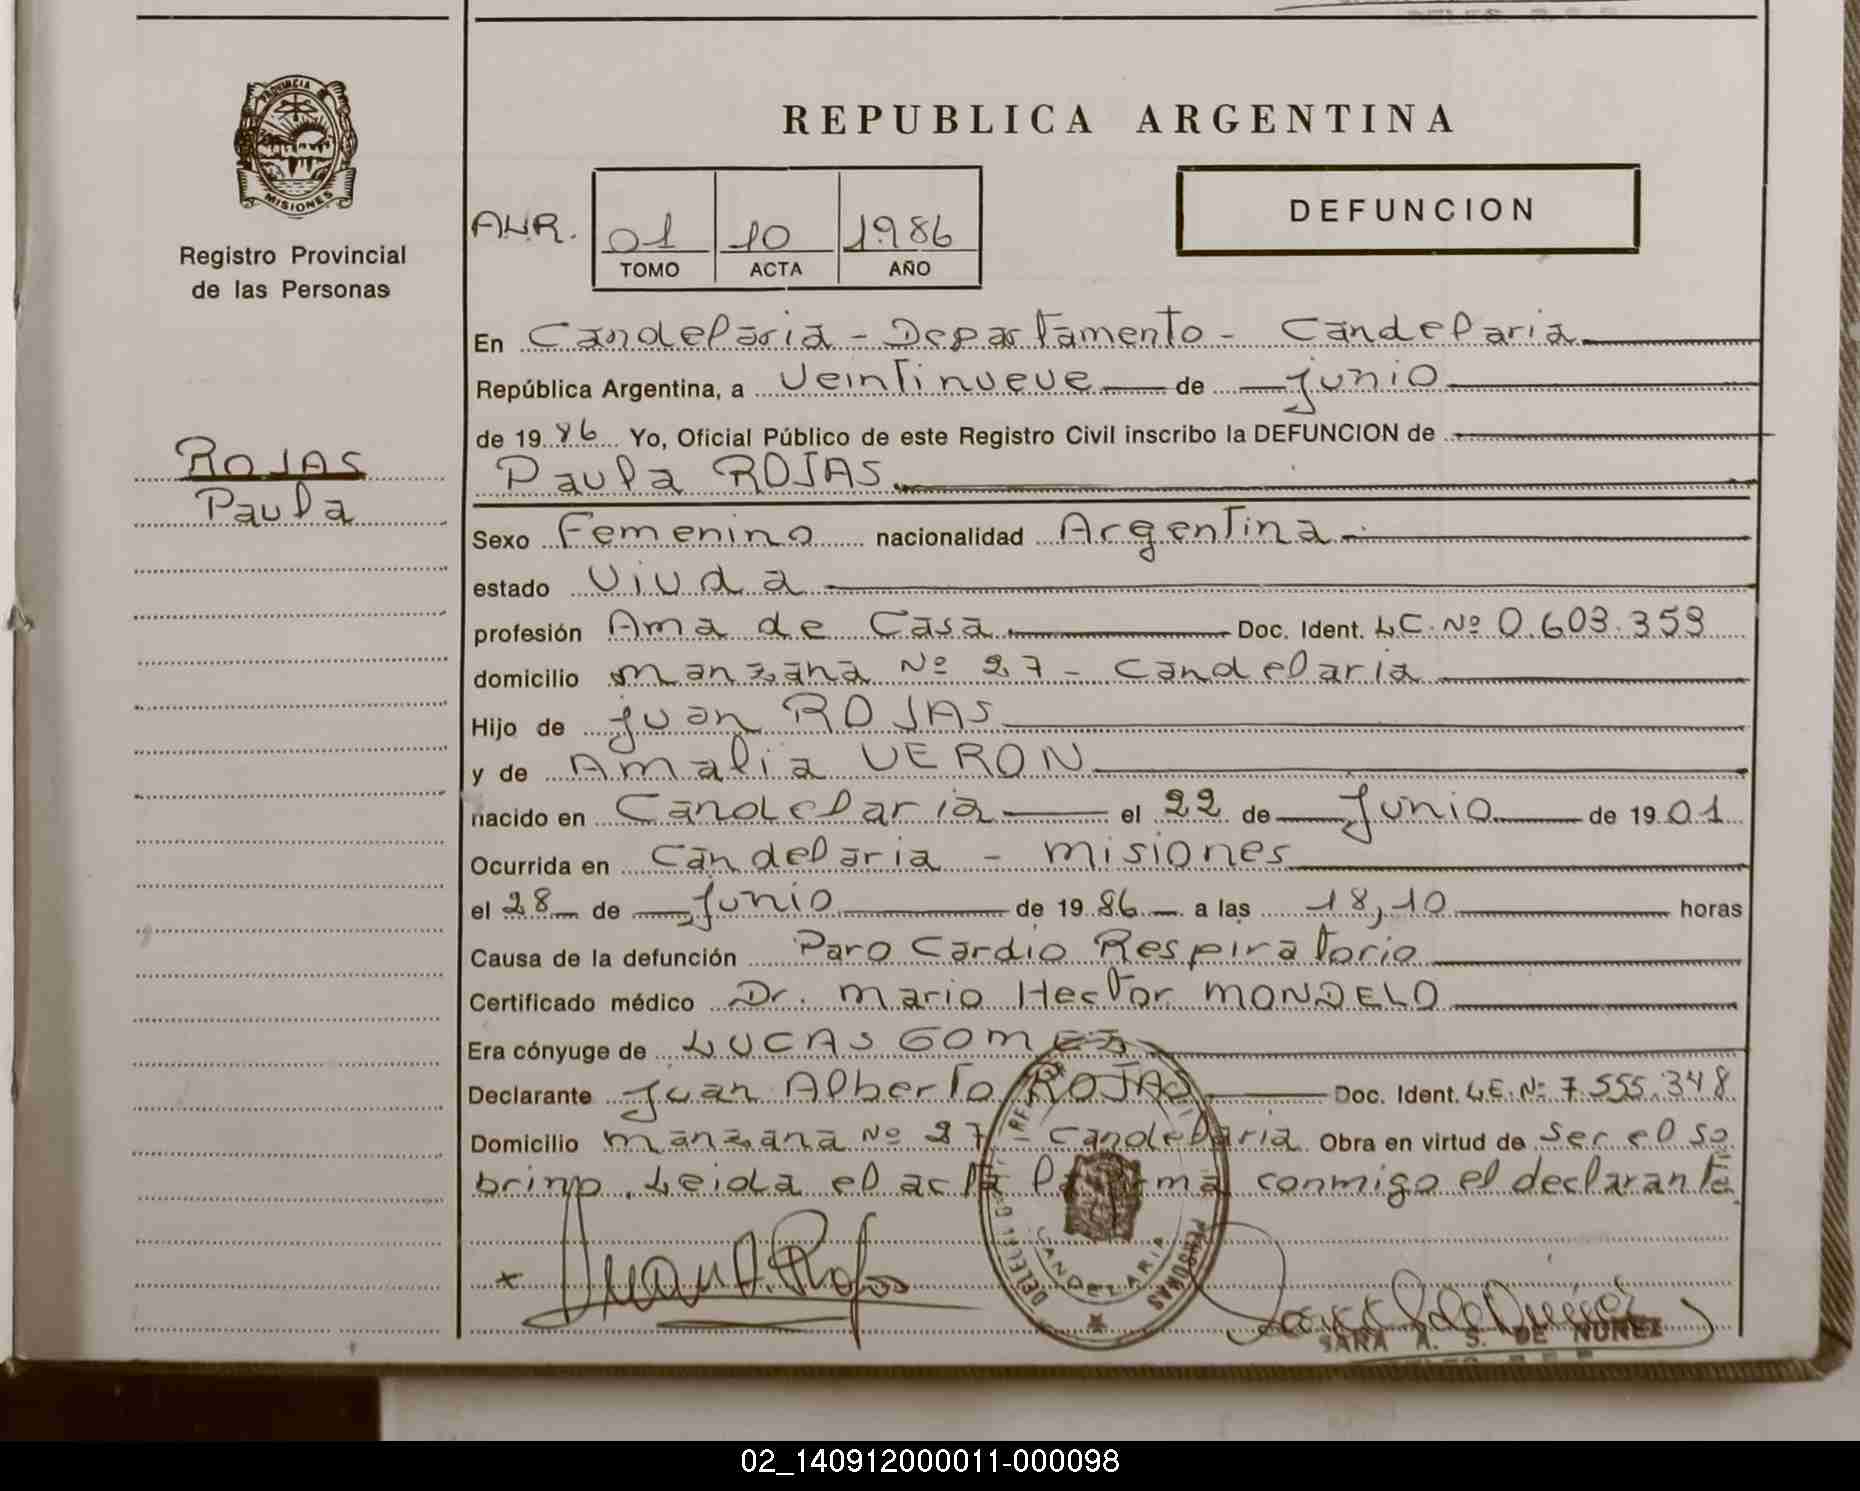 PROVINCIA DE
MISIONES
Registro Provincial
de las Personas
ROJAS
Paula
REPUBLICA ARGENTINA
AUR.
01 10 1986
TOMO ACTA AÑO
DEFUNCION
En Candelaria - Departamento - Candelaria
República Argentina, a Veintinueve de junio
de 1986 Yo, Oficial Público de este Registro Civil inscribo la DEFUNCION de
Paula ROJAS
Sexo Femenino nacionalidad Argentina.
estado Viuda
profesión Ama de Casa Doc. Ident. L.C. Nº 0.603.353
domicilio manzana Nº 27 - Candelaria
Hijo de juan ROJAS
y de Amalia VERON
nacido en Candelaria el 22 de Junio de 1901
Ocurrida en Candelaria - misiones
el 28 de Junio de 1986 a las 18,10 horas
Causa de la defunción Paro Cardio Respiratorio
Certificado médico Dr. Mario Hector MONDELO
Era cónyuge de LUCAS GOMEZ
Declarante juan Alberto ROJAS Doc. Ident. L.E. Nº 7.555.348
Domicilio manzana Nº 27 Candelaria Obra en virtud de Ser el so
brino. Leida el acta la firma conmigo el declarante.
x Juan A. Rojas
CANDELARIA
PERSONAS
SARA A. S. DE NUÑEZ
02_140912000011-000098